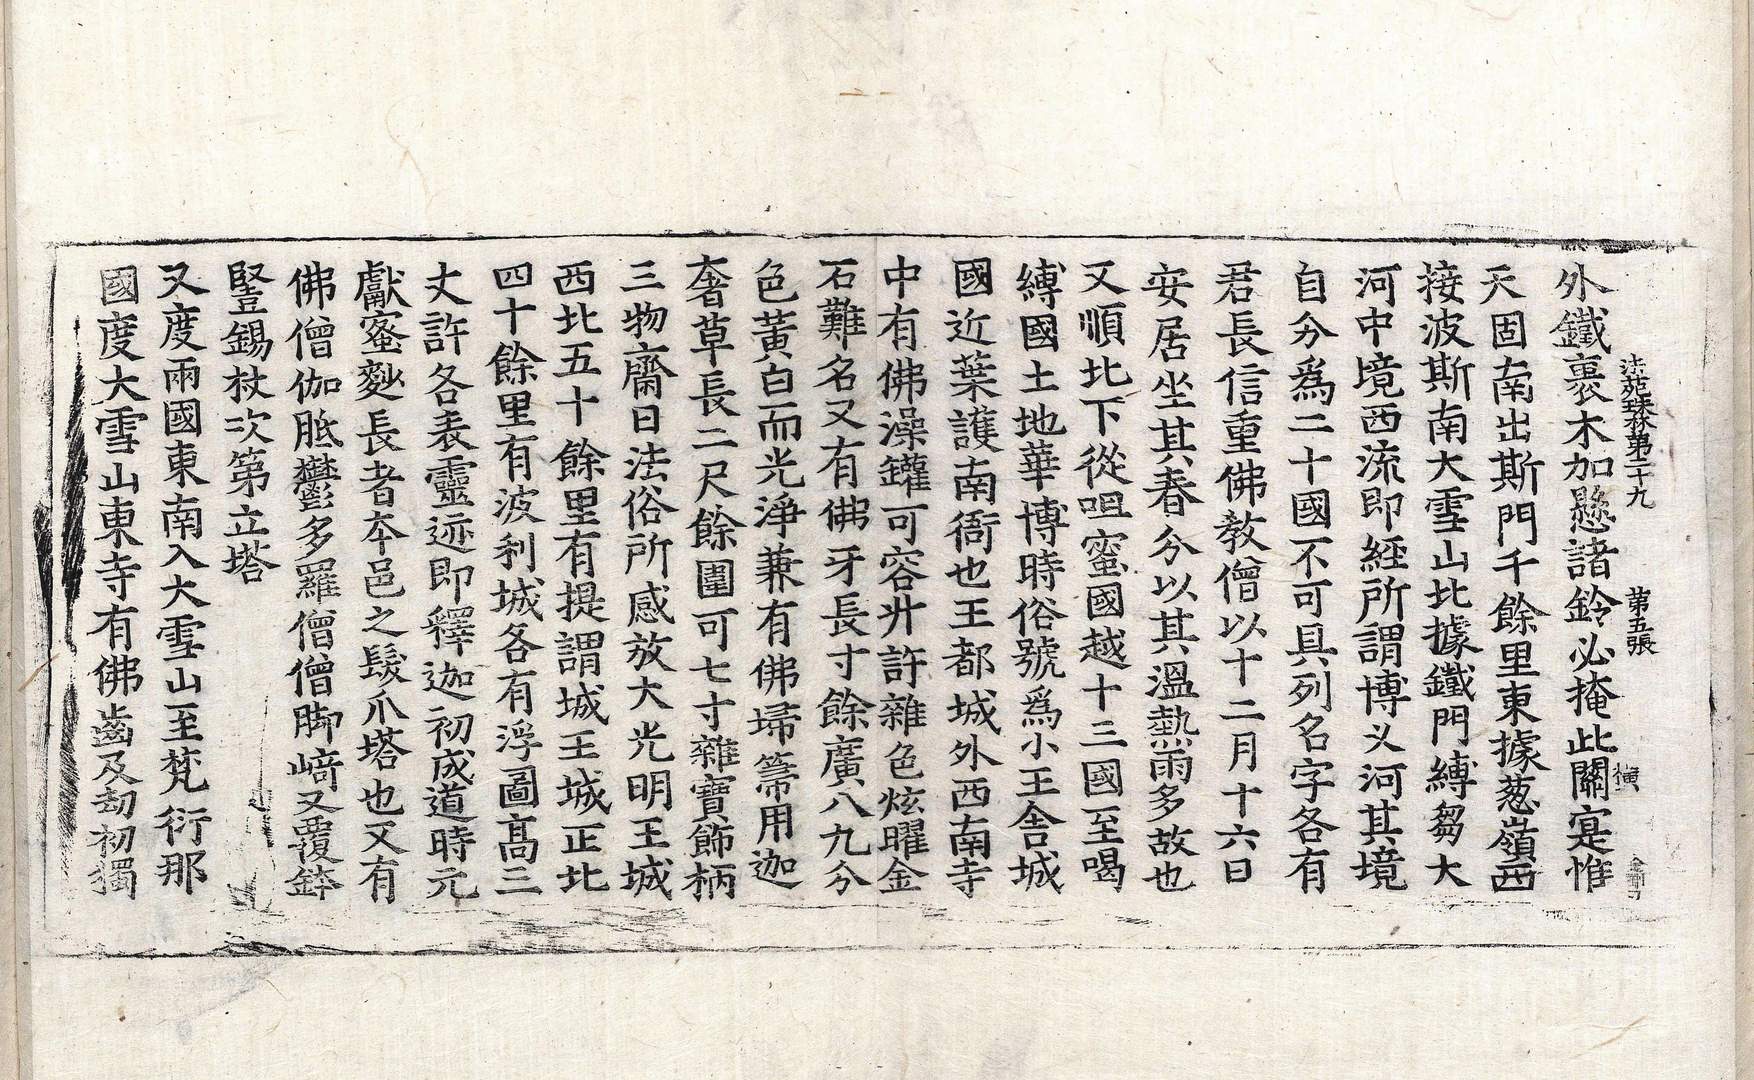 法苑珠林第二十九 第五張 橫
外鐵裹木加懸諸鈴必掩此關寔惟
天固南出斯門千餘里東據葱嶺西
接波斯南大雪山北據鐵門縛芻大
河中境西流即經所謂博叉河其境
自分爲二十國不可具列名字各有
君長信重佛教僧以十二月十六日
安居坐其春分以其溫熱雨多故也
又順北下從呾蜜國越十三國至喝
縛國土地華博時俗號爲小王舍城
國近葉護南衙也王都城外西南寺
中有佛澡罐可容升許雜色炫曜金
石難名又有佛牙長寸餘廣八九分
色黃白而光淨兼有佛埽箒用迦
奢草長二尺餘圍可七寸雜寶飾柄
三物齋日法俗所感放大光明王城
西北五十餘里有提謂城王城正北
四十餘里有波利城各有浮圖高三
丈許各表靈迹即釋迦初成道時元
獻蜜麨長者本邑之髮爪塔也又有
佛僧伽胝鬱多羅僧僧脚崎又覆鉢
豎錫杖次第立塔
又度兩國東南入大雪山至梵衍那
國度大雪山東寺有佛齒及劫初獨